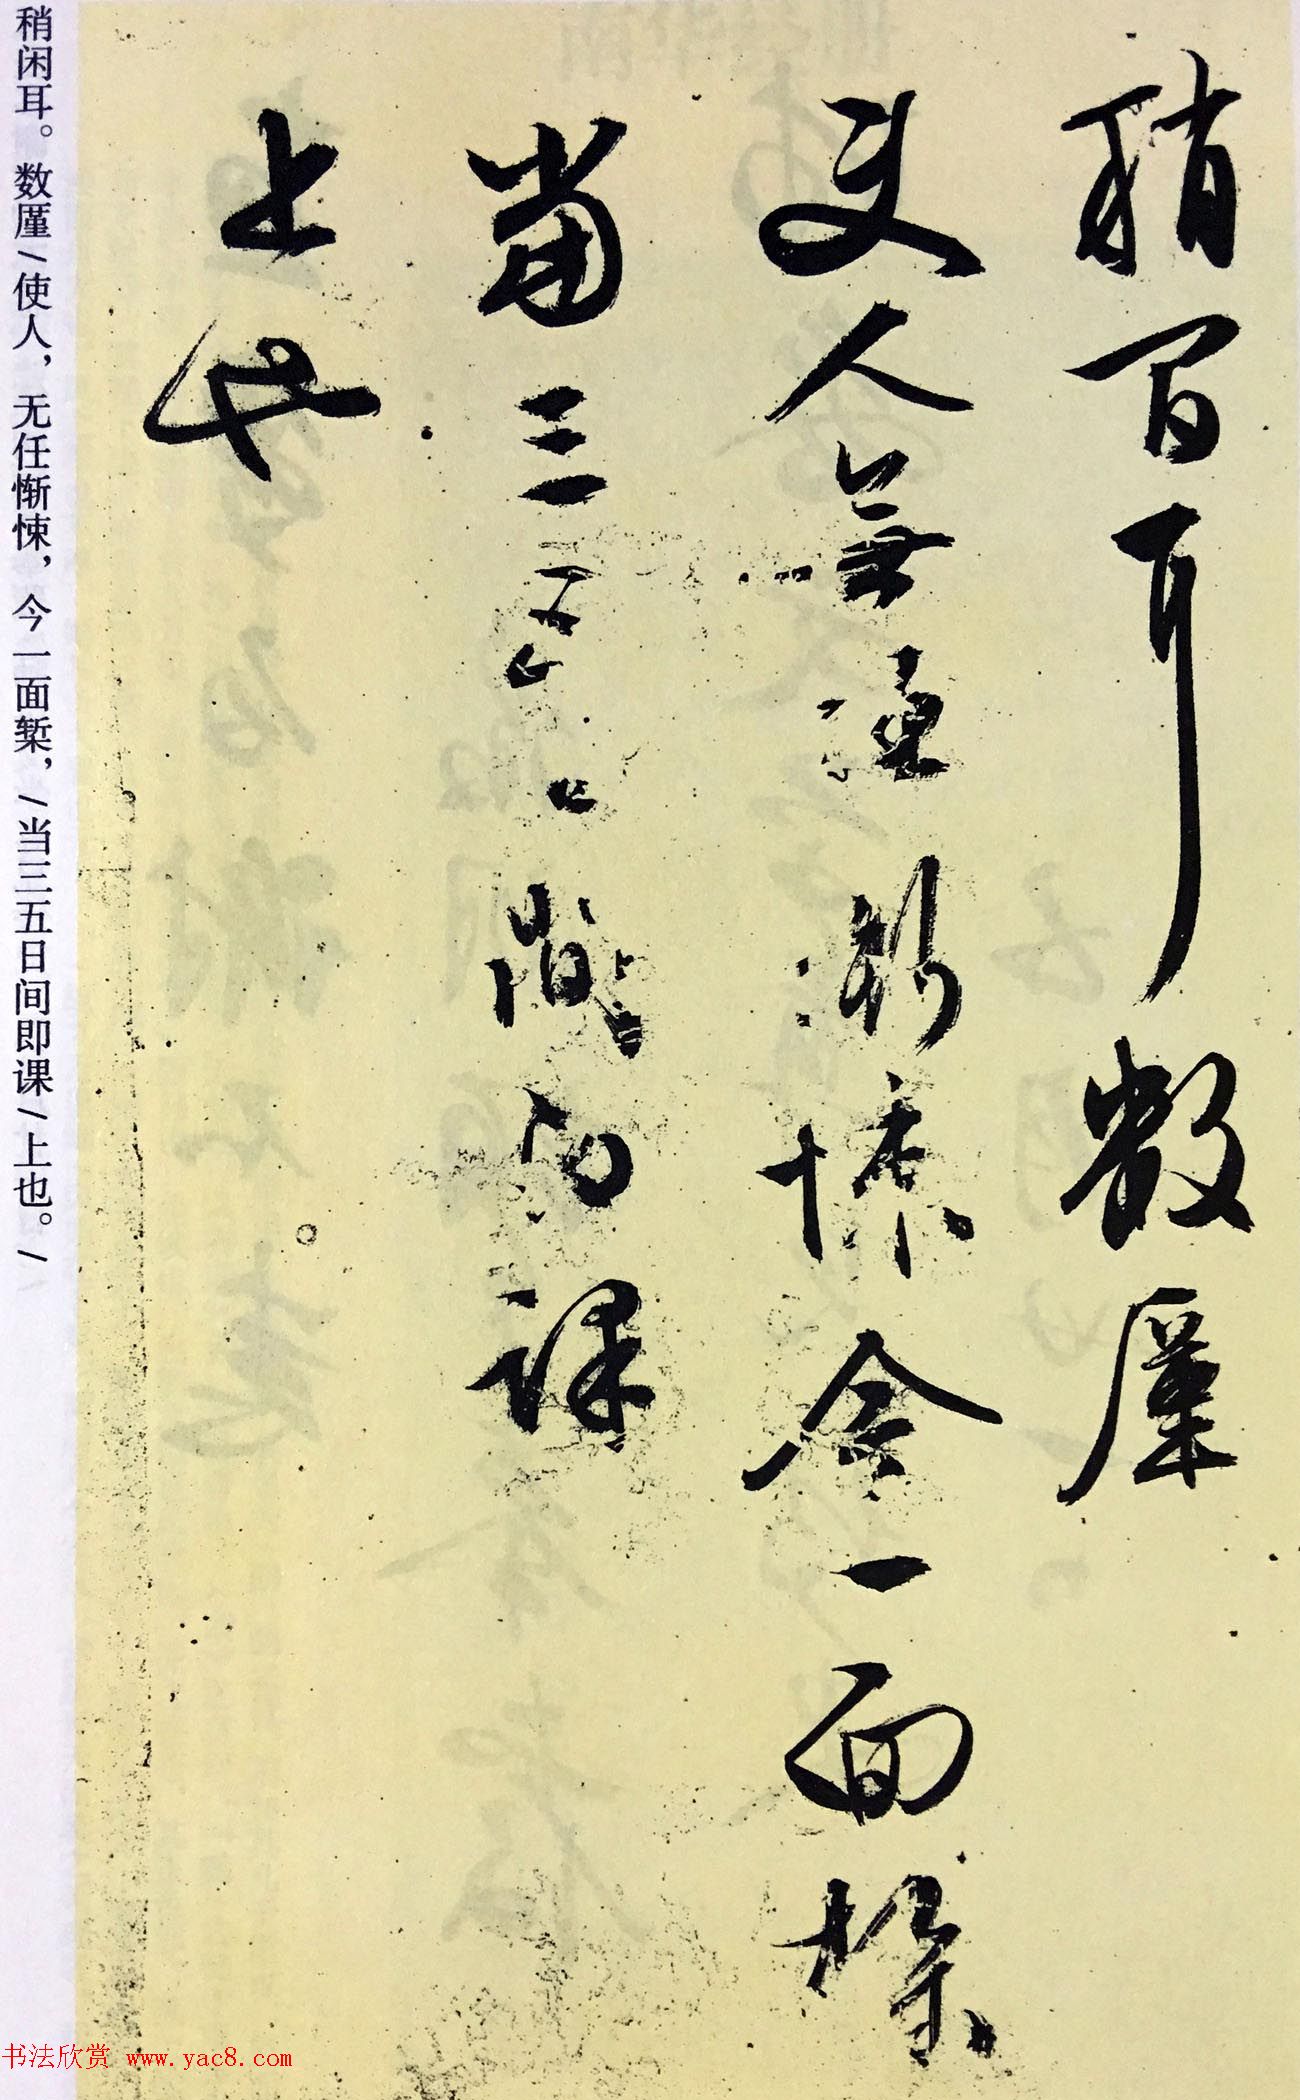 稍间耳数廑
使人無任渐悚今一面槧
當三五日間即課
上也
稍闲耳。数廑/使人，无任惭悚，今一面椠，/当三五日间即课/上也。/
书法欣赏 www.yac8.com